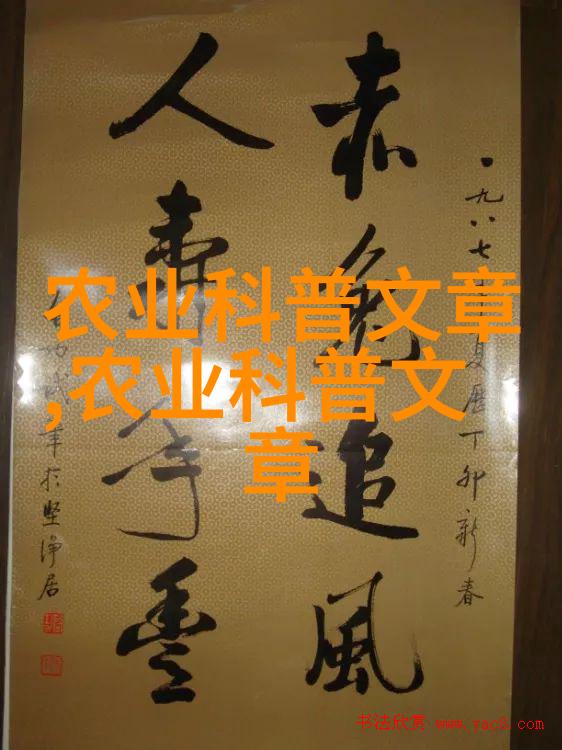 一九八七年夏历丁卯新春
赤兔追风
人寿年丰
于坚净居
农业科普文章
,农业科普文
章
书法欣赏 www.yac8.com